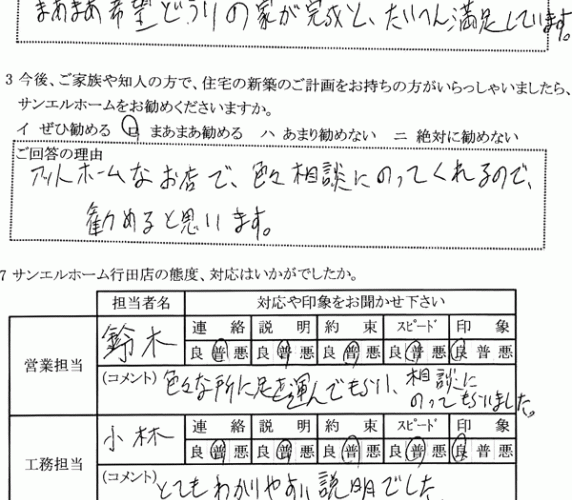 まあまあ希望どうりの家が完成と、たいへん満足しています。
3 今後、ご家族や知人の方で、住宅の新築のご計画をお持ちの方がいらっしゃいましたら、
サンエルホームをお勧めくださいますか。
イ ぜひ勧める ロ まあまあ勧める ハ あまり勧めない ニ 絶対に勧めない
ご回答の理由
アットホームなお店で、色々相談にのってくれるので、
勧めると思います。
7 サンエルホーム行田店の態度、対応はいかがでしたか。
担当者名 対応や印象をお聞かせ下さい
営業担当 鈴木 連絡 説明 約束 スピード 印象
良 普 悪 良 普 悪 良 普 悪 良 普 悪 良 普 悪
(コメント) 色々な所に足を運んでもらい、相談に
のってもらいました。
工務担当 小林 連絡 説明 約束 スピード 印象
良 普 悪 良 普 悪 良 普 悪 良 普 悪 良 普 悪
(コメント) とてもわかりやすい説明でした